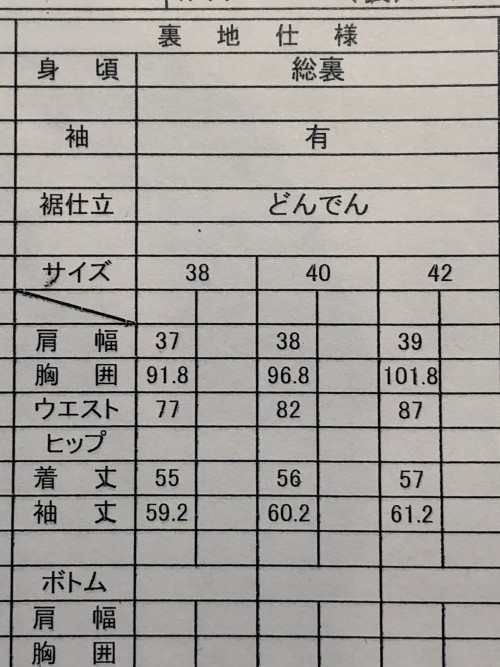 裏地仕様
身頃 総裏
袖 有
裾仕立 どんでん
サイズ 38 40 42
肩幅 37 38 39
胸囲 91.8 96.8 101.8
ウエスト 77 82 87
ヒップ
着丈 55 56 57
袖丈 59.2 60.2 61.2
ボトム
肩幅
胸囲